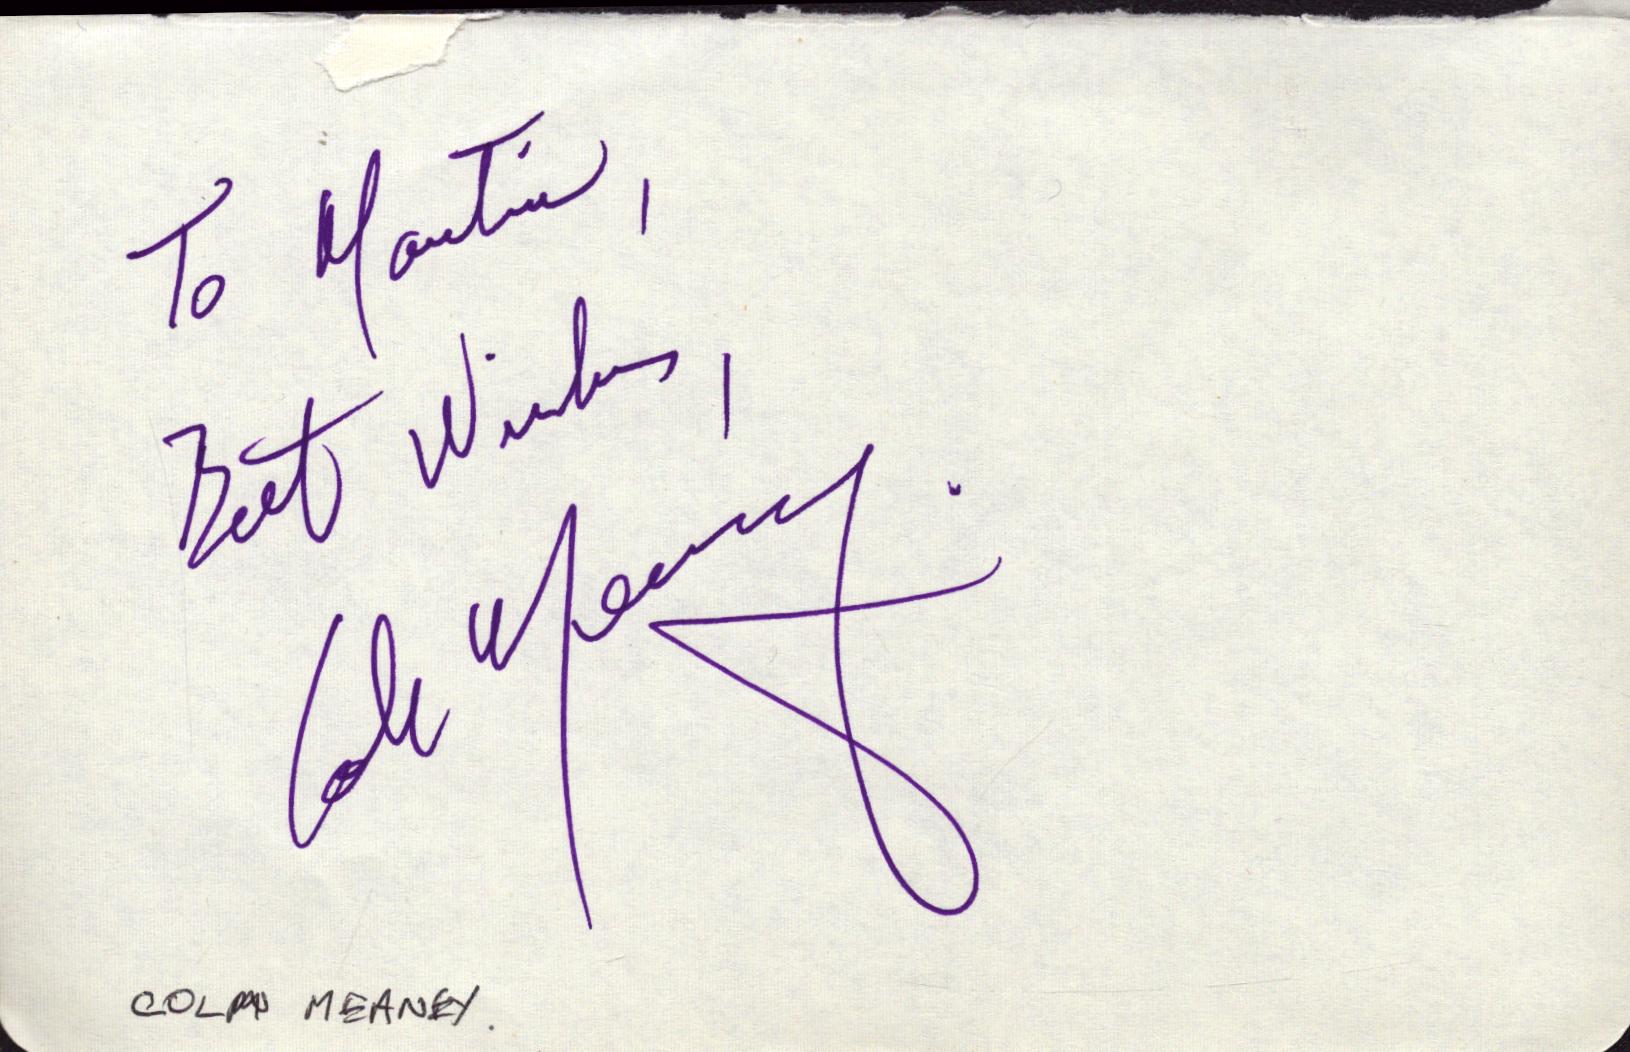 To Martin,
Best Wishes,
Colm Meaney.
COLM MEANEY.